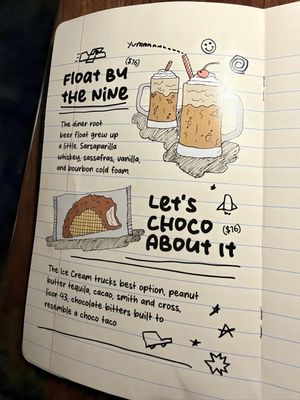 yummmmmm
Float By ($16)
the Nine
The diner root
beer float grew up
a little. Sarsaparilla
whiskey, sassafras, vanilla,
and bourbon cold foam.
Let's
CHOCO ($16)
About it
The Ice Cream trucks best option, peanut
butter tequila, cacao, smith and cross,
licor 43, chocolate bitters built to
resemble a choco taco